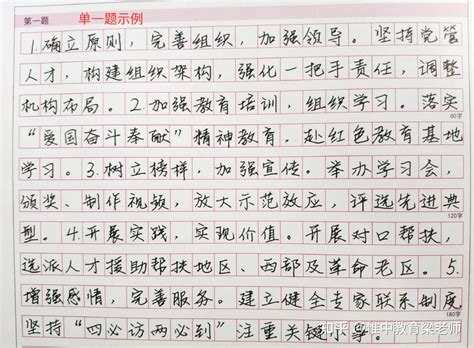 第一题 单一题示例
1.确立原则，完善组织，加强领导。坚持党管
人才，构建组织架构，强化一把手责任，调整
机构布局。2.加强教育培训，组织学习。落实
60字
“爱国奋斗奉献”精神教育，赴红色教育基地
学习。3.树立榜样，加强宣传。举办学习会，
颁奖、制作视频，放大示范效应，评选先进典
120字
型。4.开展实践，实现价值。开展对口帮扶，
选派人才援助帮扶地区、西部及革命老区。5.
增强感情，完善服务。建立健全专家联系制度
180字
坚持“四必访两必到”注重关键小事。
知乎 @唯中教育梁老师